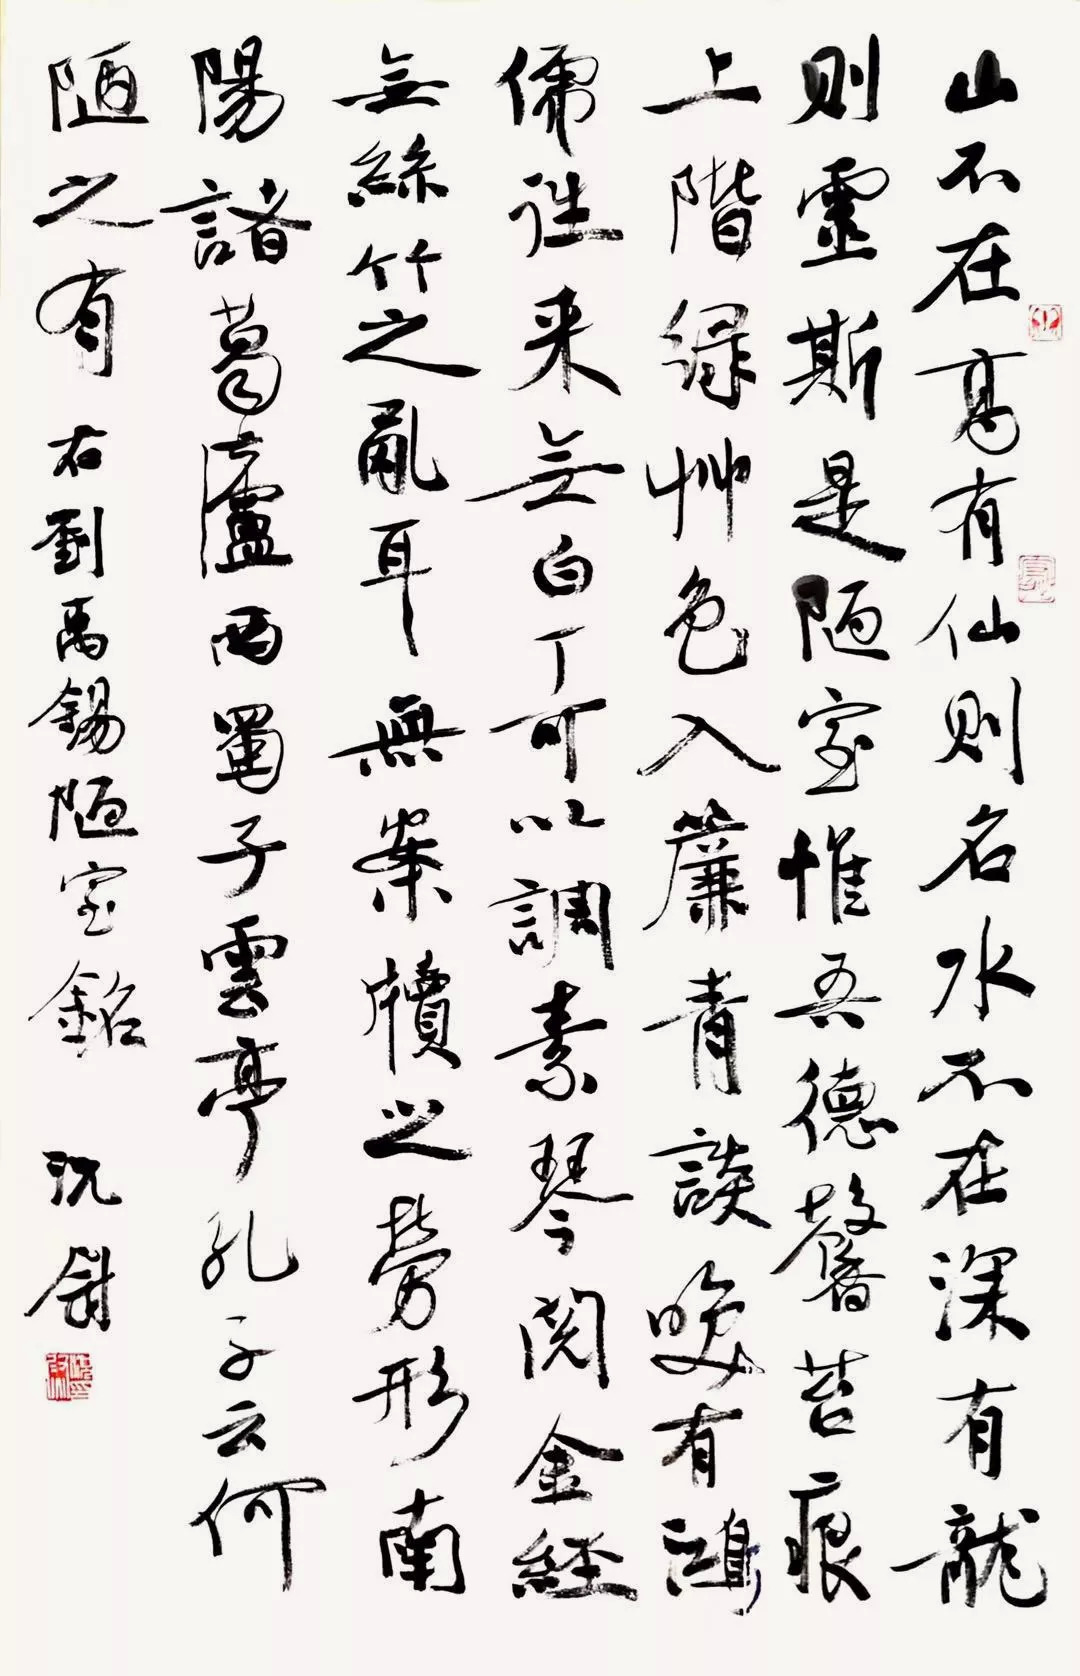 山不在高有仙则名水不在深有龍
则靈斯是陋室惟吾德馨苔痕
上階绿艸色入簾青談笑有鴻
儒往来無白丁可以調素琴閲金經
無絲竹之亂耳無案牘之勞形南
陽諸葛廬西蜀子雲亭孔子云何
陋之有 右劉禹錫陋室銘